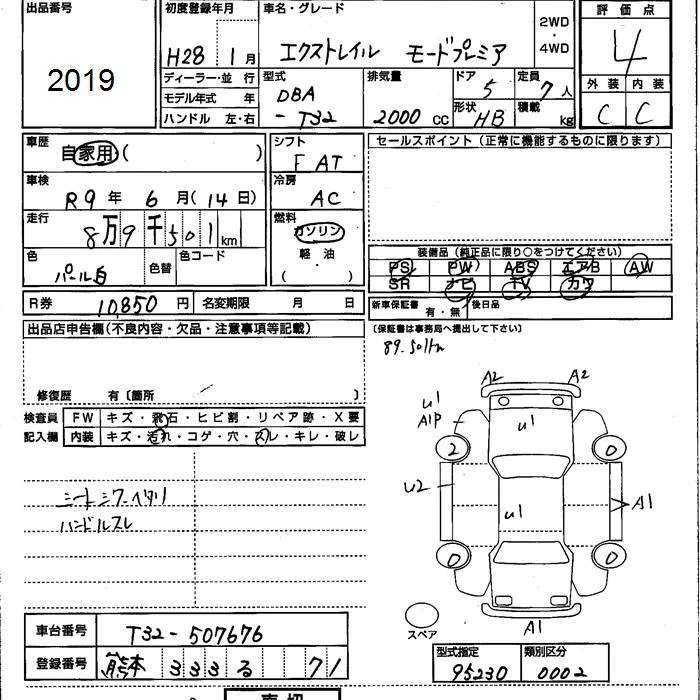 出品番号 初度登録年月 車名・グレード 2WD ・ 4WD 評価点
2019 H28 1月 エクストレイル モードプレミア 4
ディーラー・並行 型式 排気量 ドア 定員 外装 内装
モデル年式 年 DBA 5 7人 C C
ハンドル 左・右 -T32 2000cc 形状 HB 積載 kg
車歴 自家用( ) シフト F AT セールスポイント(正常に機能するものに限ります)
車検 R9年 6月(14日) 冷房 AC
走行 8万9千501km 燃料 ガソリン
色 パール白 色替 色コード 軽・油 ( )
装備品(純正品に限り○をつけてください)
PS PW ABS エアB AW
SR ナビ TV カワ
R券 10,850円 名変期限 月 日 新車保証書 有・無 後日品
出品店申告欄(不良内容・欠品・注意事項等記載) (保証書は事務局へ提出して下さい)
89.501km
修復歴 有〔箇所 〕
検査員 FW キズ・飛石・ヒビ割・リペア跡・X要
記入欄 内装 キズ・汚れ・コゲ・穴・スレ・キレ・破レ
A2 A2
U1 A1P U1
2 0
U2 U1 A1
0 0
シートシワ・ヘタリ
ハンドルスレ
スペア A1
車台番号 T32-507676
登録番号 熊本 333 る 71
型式指定 類別区分
95230 0002